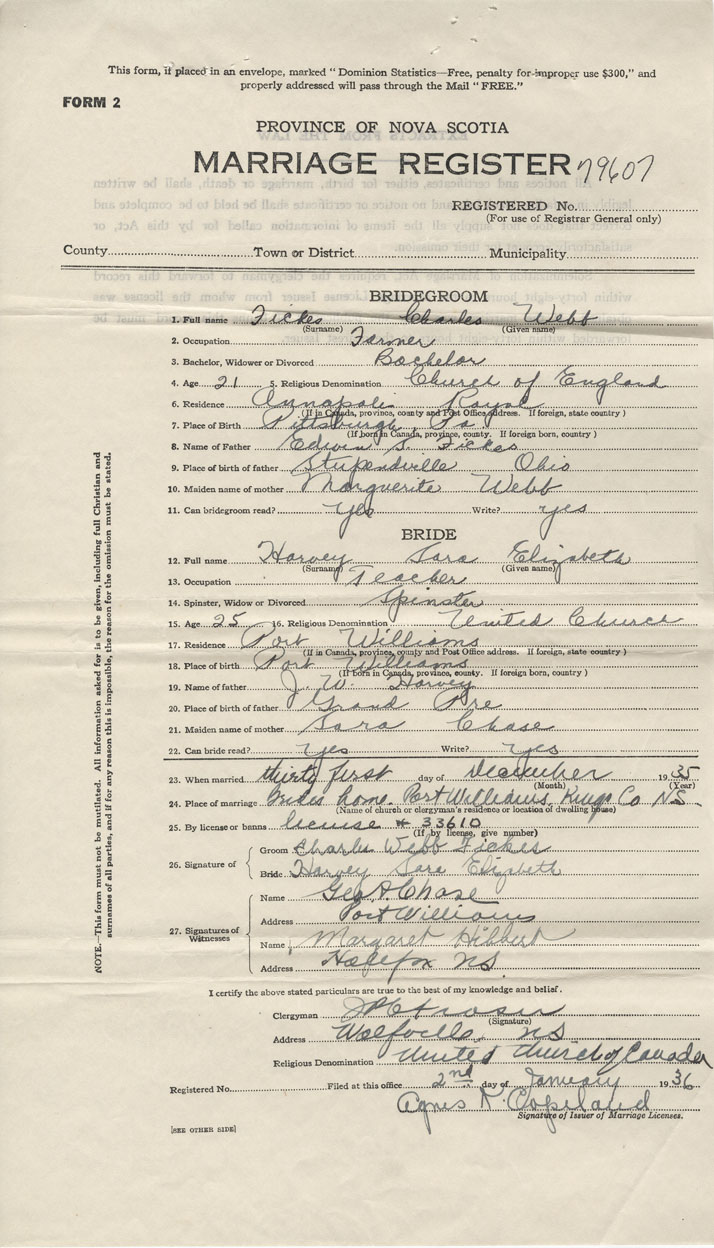 This form, if placed in an envelope, marked "Dominion Statistics—Free, penalty for improper use $300," and
properly addressed will pass through the Mail "FREE."
FORM 2
PROVINCE OF NOVA SCOTIA
MARRIAGE REGISTER 79607
REGISTERED No.
(For use of Registrar General only)
County Town or District Municipality
BRIDEGROOM
1. Full name Fickes Charles Webb
(Surname) (Given name)
2. Occupation Farmer
3. Bachelor, Widower or Divorced Bachelor
4. Age 21 5. Religious Denomination Church of England
6. Residence Annapolis Royal
(If in Canada, province, county and Post Office address. If foreign, state country)
7. Place of Birth Pittsburgh Pa.
(If born in Canada, province, county. If foreign born, country)
8. Name of Father Edwin S. Fickes
9. Place of birth of father Ohio
10. Maiden name of mother Marguerite Webb
11. Can bridegroom read? Yes Write? yes
BRIDE
12. Full name Harvey Sara Elizabeth
(Surname) (Given name)
13. Occupation Teacher
14. Spinster, Widow or Divorced Spinster
15. Age 25 16. Religious Denomination United Church
17. Residence Port Williams
(If in Canada, province, county and Post Office address. If foreign, state country)
18. Place of birth Port Williams
(If born in Canada, province, county. If foreign born, country)
19. Name of father J. W. Harvey
20. Place of birth of father Grand Pre
21. Maiden name of mother Sara Chase
22. Can bride read? Yes Write? Yes
23. When married thirty first day of December 1935
(Month) (Year)
24. Place of marriage Brides home. Port Williams, Kings Co NS
(Name of church or clergyman's residence or location of dwelling house)
25. By license or banns license # 33610
(If by license, give number)
26. Signature of
Groom Charles Webb Fickes
Bride Harvey Sara Elizabeth
27. Signatures of Witnesses
Name Geo A. Chase
Address Port Williams
Name Margaret Hibbert
Address Halifax NS
I certify the above stated particulars are true to the best of my knowledge and belief.
Clergyman
(Signature)
Address Wolfville, NS
Religious Denomination United Church of Canada
Registered No. Filed at this office 2nd day of January 1936
Agnes K. Copeland
Signature of Issuer of Marriage Licenses.
[SEE OTHER SIDE]
NOTE.—This form must not be mutilated. All information asked for is to be given, including full Christian and
surnames of all parties, and if for any reason this is impossible, the reason for the omission must be stated.